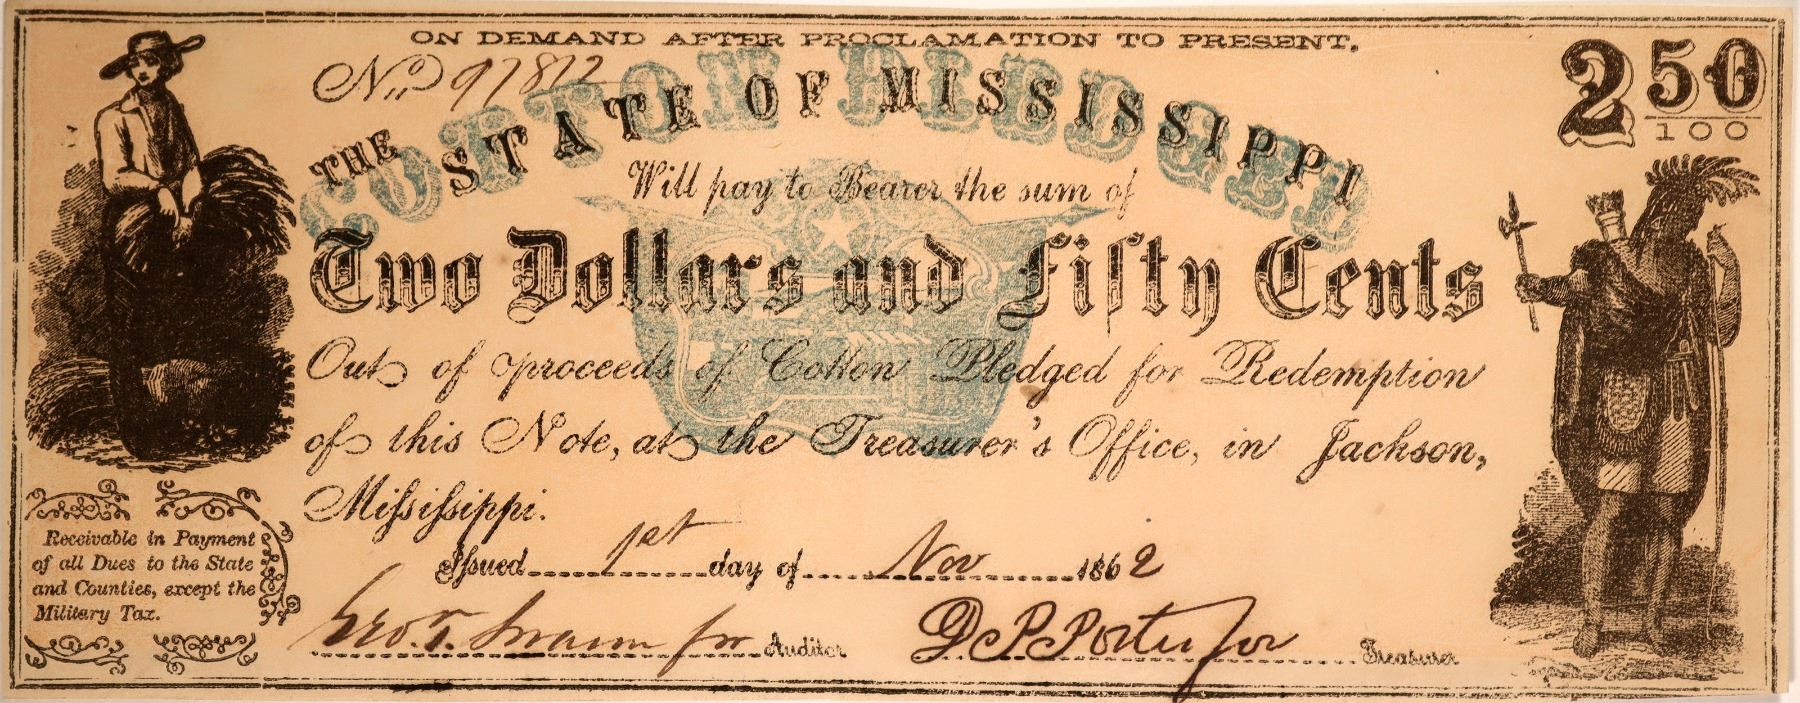 ON DEMAND AFTER PROCLAMATION TO PRESENT.
No 97812
2 50/100
COTTON PLEDGED
THE STATE OF MISSISSIPPI
Will pay to Bearer the sum of
Two Dollars and Fifty Cents
Out of proceeds of Cotton Pledged for Redemption
of this Note, at the Treasurer's Office, in Jackson,
Mississippi.
Issued 1st day of Nov 1862
Receivable in Payment
of all Dues to the State
and Counties, except the
Military Tax.
Geo. T. Swann for Auditor
D P Porter for Treasurer